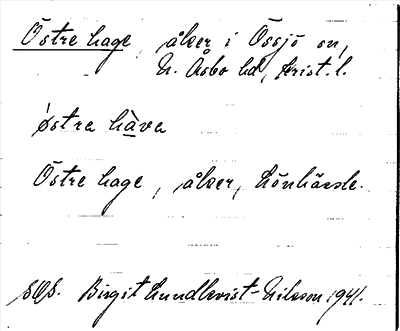 Östre hage, åker i Össjö sn,
N. Åsbo hd, Krist. l.
östra hàva
Östre hage, åker, Lönhärde.
SOS. Birgit Lundkvist-Nilsson 1941.